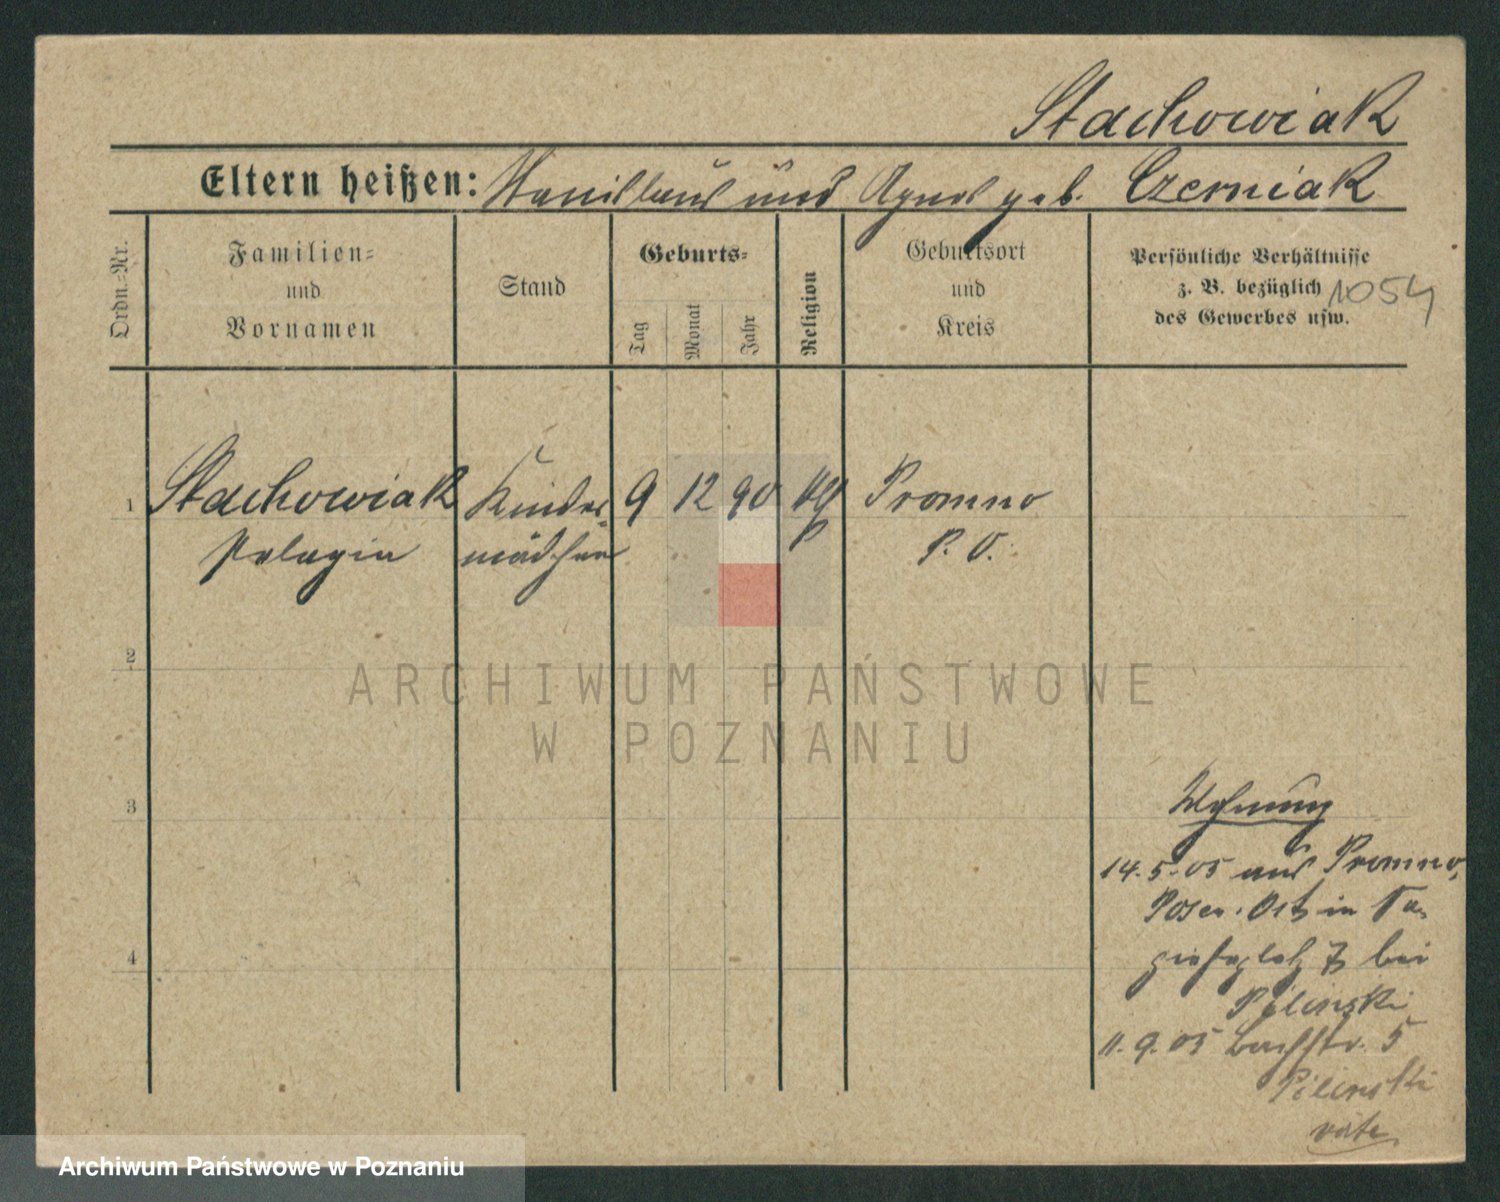 Stachowiak
Eltern heißen: Stanislaus und Agnes geb. Czerniak
Ordn.-Nr.
Familien-
und
Vornamen
Stand
Geburts-
Tag
Monat
Jahr
Religion
Geburtsort
und
Kreis
Persönliche Verhältnisse
z. B. bezüglich
des Gewerbes usw.
1054
1 Stachowiak Kinder- 9 12 90 Promno
Pelagia mädchen P. O.
2
3
4
Wohnung
14.5.05 aus Promno,
Posen-Ost in
bei
Pilinski
11.9.05 Bachstr. 5
Pilinski
ARCHIWUM PAŃSTWOWE
W POZNANIU
Archiwum Państwowe w Poznaniu